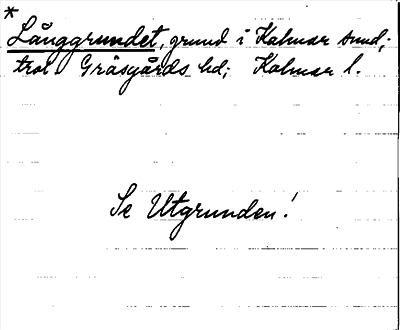 *
Långgrundet, grund i Kalmar sund;
trol Gräsgårds hd; Kalmar l.
Se Utgrunden!